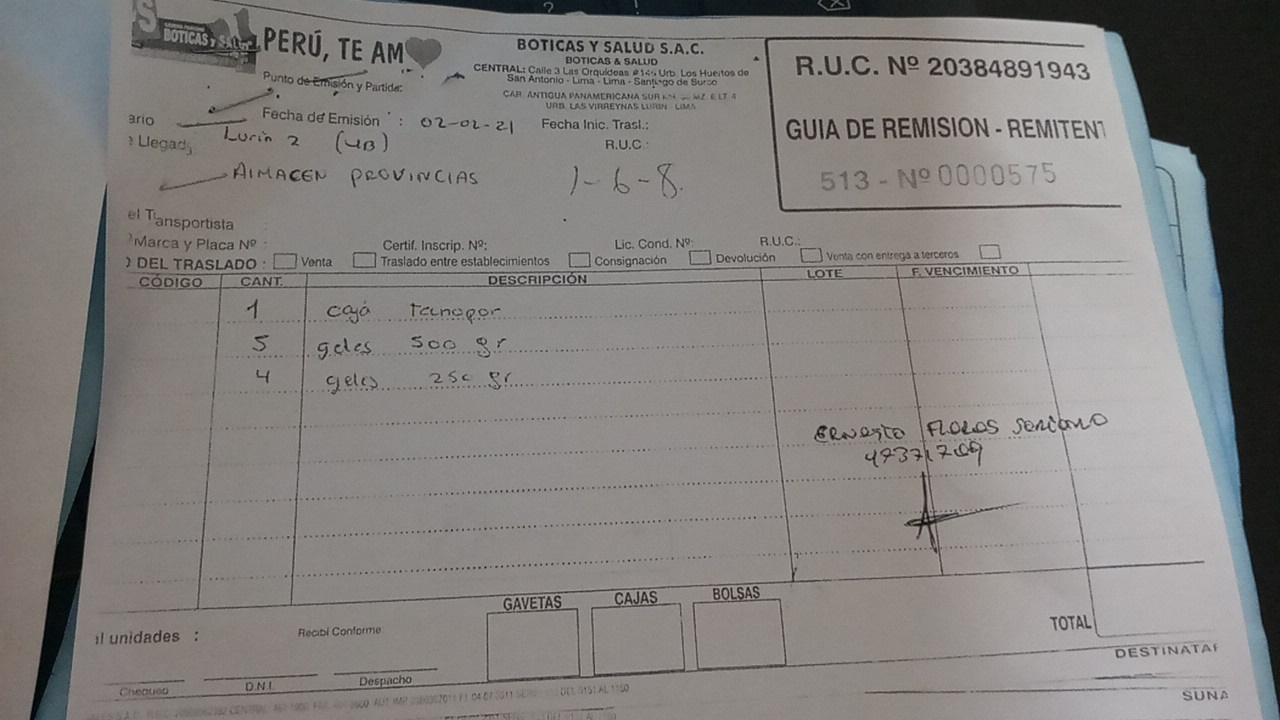 BOTICAS Y SALUD
PERÚ, TE AM
BOTICAS Y SALUD S.A.C.
BOTICAS & SALUD
CENTRAL: Calle 3 Las Orquideas #146 Urb. Los Huertos de
San Antonio - Lima - Lima - Santiago de Surco
CAR. ANTIGUA PANAMERICANA SUR MZ. E LT. 4
URB. LAS VIRREYNAS LURIN - LIMA
R.U.C. Nº 20384891943
GUIA DE REMISION - REMITENT
513 - Nº 0000575
Punto de Emisión y Partida:
ario
Fecha de Emisión : 02-02-21
Fecha Inic. Trasl.:
Llegad
Lurin 2 (4B)
R.U.C.:
AlMACEN PROVINCIAS
1-6-8.
el Transportista
Marca y Placa Nº
Certif. Inscrip. Nº:
Lic. Cond. Nº:
R.U.C.:
DEL TRASLADO :
Venta
Traslado entre establecimientos
Consignación
Devolución
Venta con entrega a terceros
CÓDIGO CANT. DESCRIPCIÓN LOTE F. VENCIMIENTO
1 caja tecnopor
5 geles 500 gr
4 geles 250 gr
ERNESTO FLORES
GAVETAS CAJAS BOLSAS
TOTAL
il unidades :
Recibí Conforme
DESTINATAR
Chequeo
D.N.I.
Despacho
SUNA